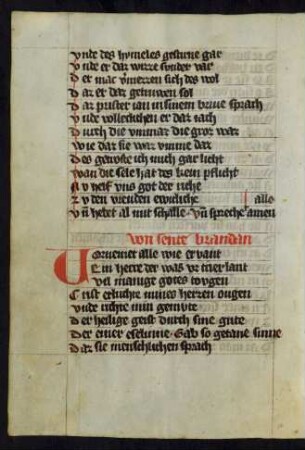 vnde des hymeles gesturne gar
vnde er dar wirre sunder var
Der mac vmerren sich des wol
Dar et dar getruwen sol
Dar prister ian in sinem brive sprach
vnde vollecliche er dar nach
Durch die vmmar die groz war
wie dar sie war vmme dar
Des geweste ich nuch gar licht
wan die sele hat des kein pflicht
Nv helf vns got der riche
zv den vreuden ewicliche alle
vñ hebet al mit schalle vñ spreche amen
von sente brandan
Vernemet alle wie er vant
Ein herre der was vz irlant
vil manige gotes tougen
Crist erluchte mines herzen ougen
vnde richte min gemute
Der heilige geist durch sine gute
Der einer eselinne gab so getane sinne
Daz sie menschlichen sprach